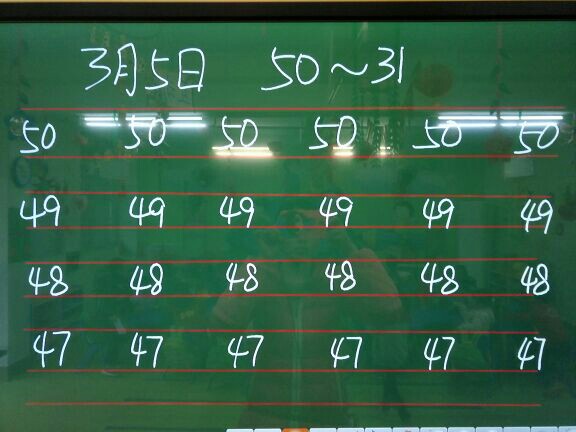 3月5日 50~31
50 50 50 50 50 50
49 49 49 49 49 49
48 48 48 48 48 48
47 47 47 47 47 47